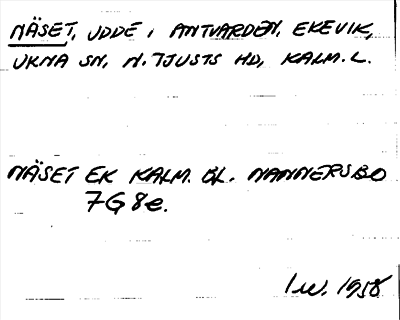 NÄSET, UDDE I ANTVARDEN, EKEVIK,
UKNA SN, N. TJUSTS HD, KALM. L.
NÄSET EK KALM. BL. NANNERSBO
7G8e.
1958